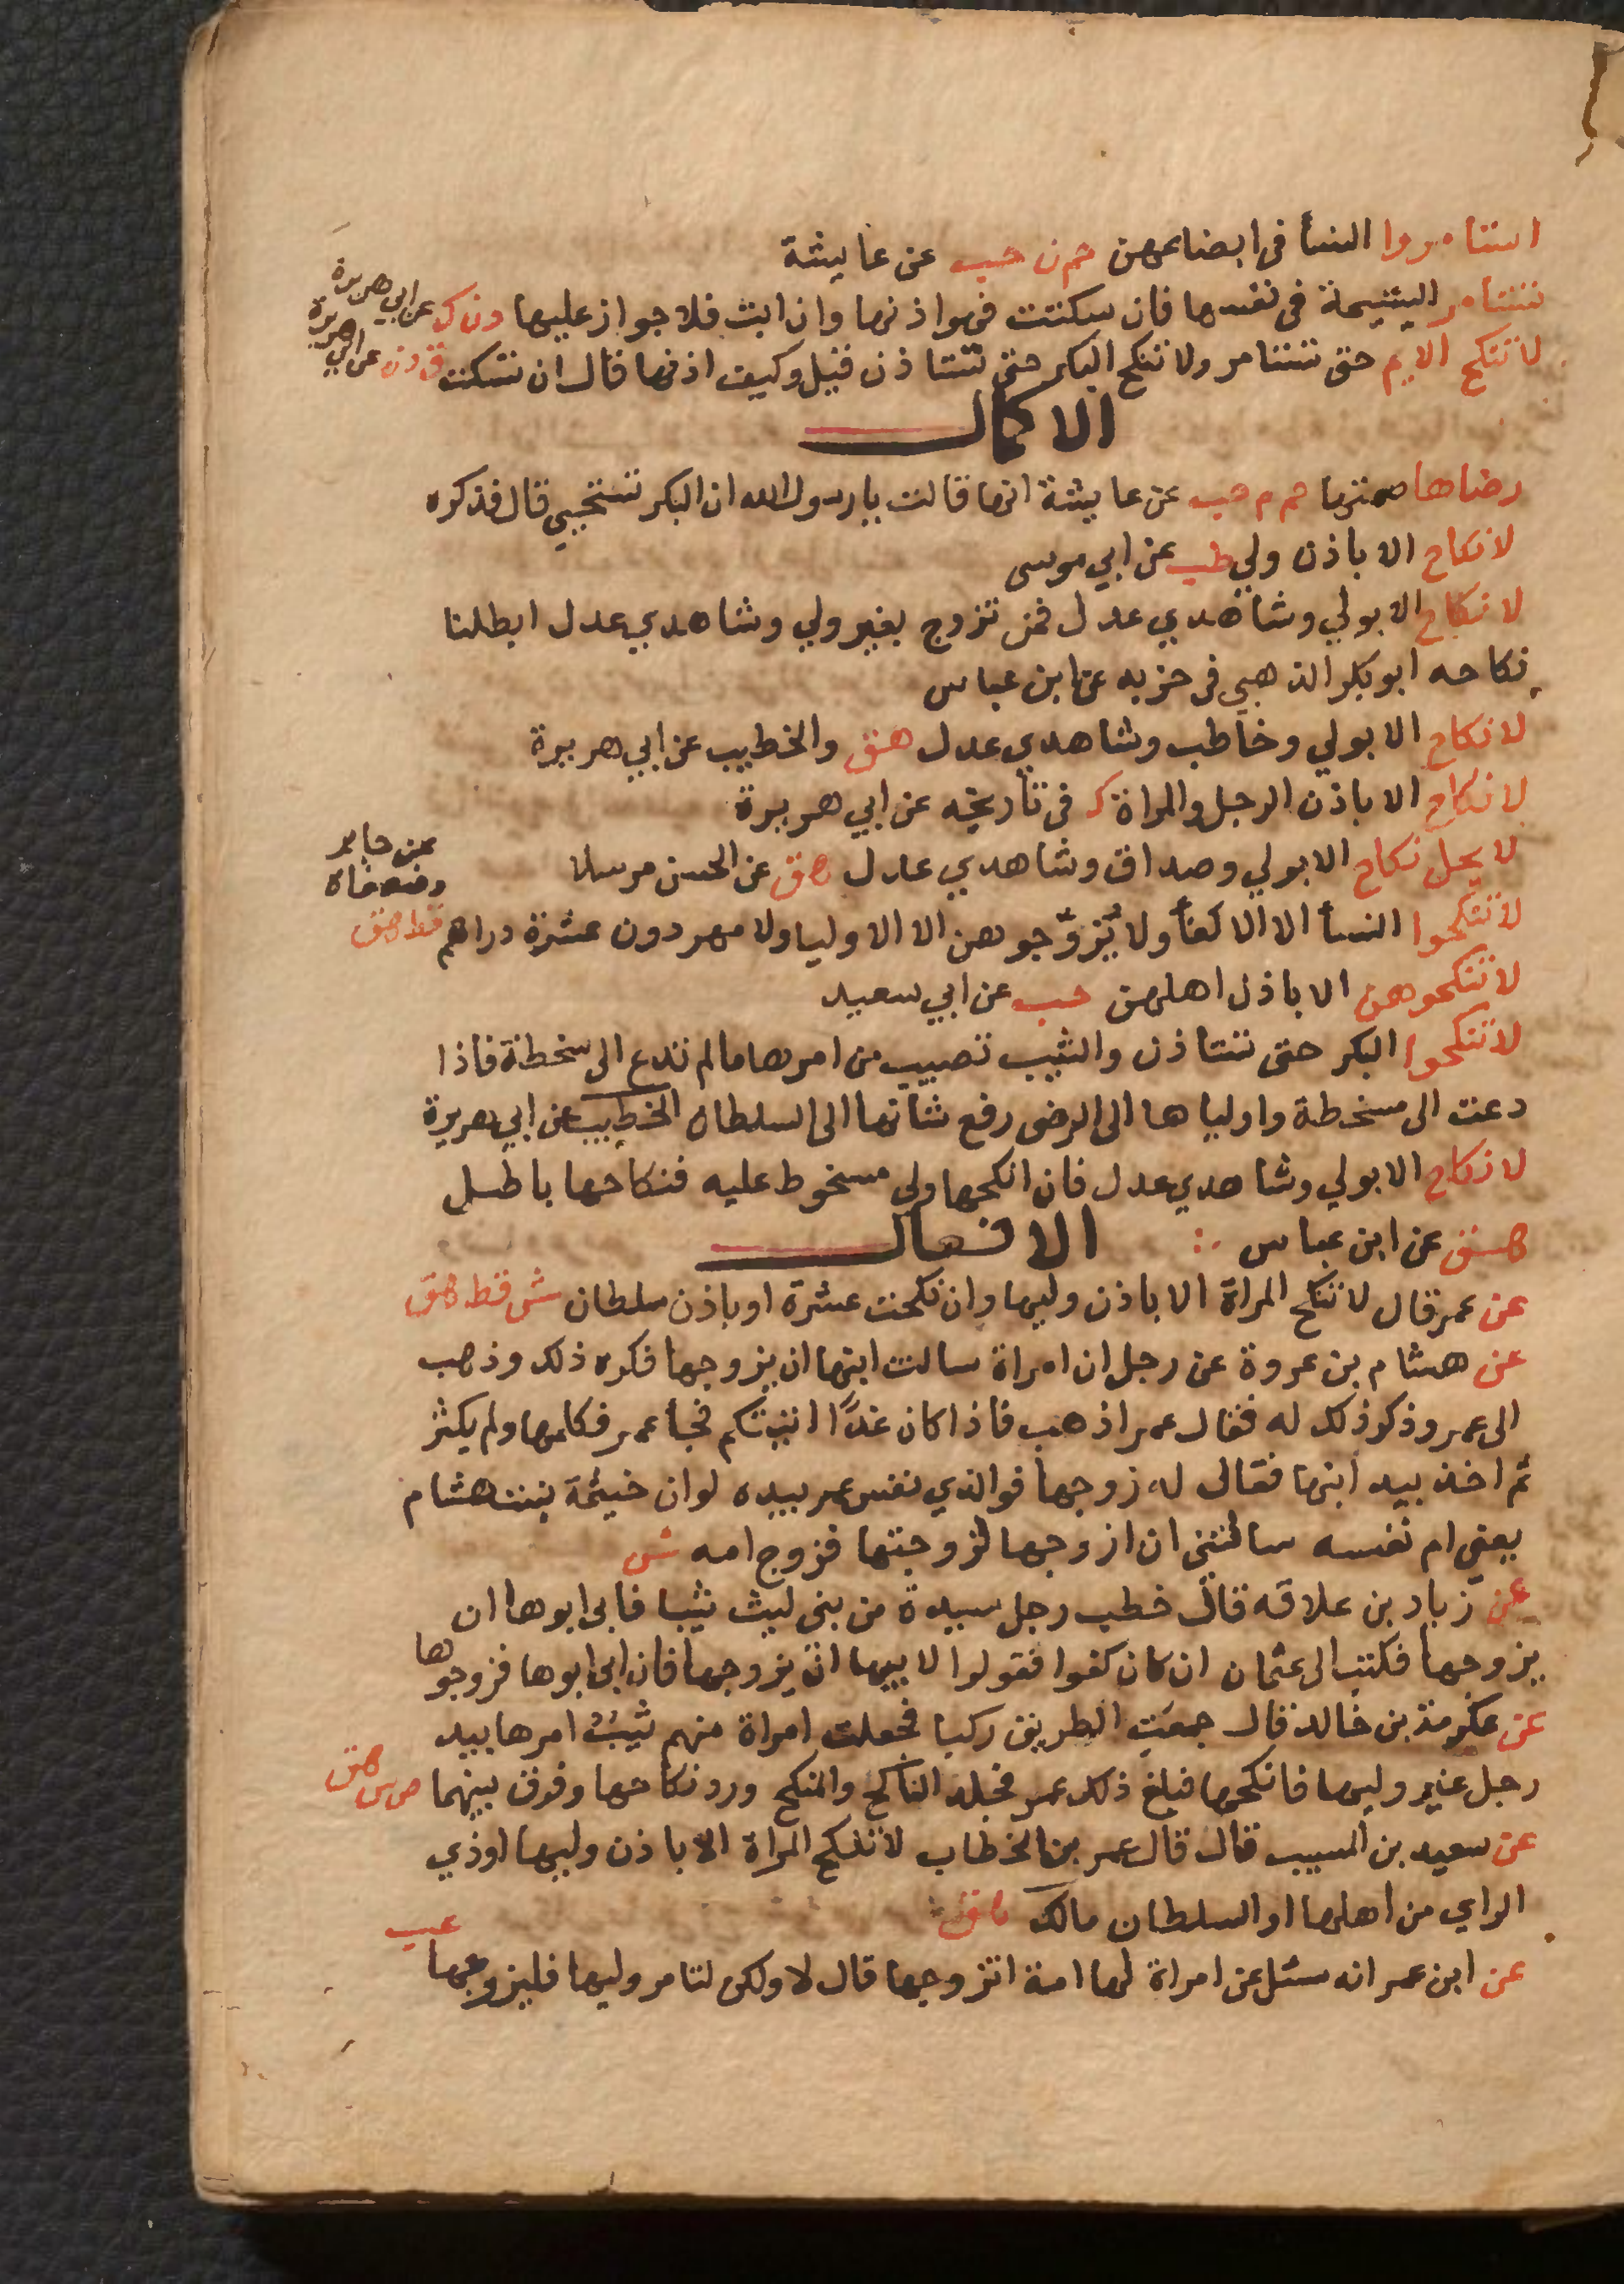 استامروا النسأ فى ابضاعهن حم ن حب عن عايشة
تستامر اليتيمة فى نفسها فان سكتت فهو اذنها وان ابت فلا جواز عليها د ن ك عن ابي هريرة
لا تنكح الايم حتى تستامر ولا تنكح البكر حتى تستاذن قيل وكيف اذنها قال ان تسكت ق د ن عن ابي هريرة
الاكمال
رضاها صمتها حم م حب عن عايشة انها قالت يا رسول الله ان البكر تستحيي قال فذكره
لا نكاح الا باذن ولي طب عن ابي موسى
لا نكاح الا بولي وشاهدي عدل فمن تزوج بغير ولي وشاهدي عدل ابطلنا
نكاحه ابو بكر الذهبي فى جزيه عن ابن عباس
لا نكاح الا بولي وخاطب وشاهدي عدل هق والخطيب عن ابي هريرة
لا نكاح الا باذن الرجل والمراة ك فى تاريخه عن ابي هريرة
لا يحل نكاح الا بولي وصداق وشاهدي عدل هق عن الحسن مرسلا
لا تنكحوا النسأ الا الاكفأ ولا يُزوِّجوهن الا الاوليا ولا مهر دون عشرة دراهم قط هق عن جابر وضعفاه
لا تنكحوهن الا باذن اهلهن حب عن ابي سعيد
لا تنكحوا البكر حتى تستاذن والثيب تصيب من امرها ما لم تدع الى سخطة فاذا
دعت الى سخطة واولياها الى الرضى رفع شانها الى السلطان الخطيب عن ابي هريرة
لا نكاح الا بولي وشاهدي عدل فان انكحها ولي مسخوط عليه فنكاحها باطل
هق عن ابن عباس الافعال
عن عمر قال لا تنكح المراة الا باذن وليها وان نكحت عشرة او باذن سلطان ش قط هق
عن هشام بن عروة عن رجل ان امراة سالت ابنها ان يزوجها فكره ذلك وذهب
الى عمر وذكر ذلك له فقال عمر اذهب فاذا كان غدًا اتيتكم فجأ عمر فكلمها ولم يكثر
ثم اخذ بيد ابنها فقال له زوجها فوالذي نفس عمر بيده لو ان خيثمة بنت هشام
يعني ام نفسه سالتني ان ازوجها لزوجتها فزوج امه ش
عن زياد بن علاقه قال خطب رجل سيدة من بنى ليث ثيبا فابى ابوها ان
يزوجها فكتب الى عثمان ان كان كفوا فقولوا لابيها ان يزوجها فان ابى ابوها فزوجوها
عن عكرمة بن خالد قال جمعت الطريق ركبا فجعلت امراة منهم ثيبٌ امرها بيد
رجل غير وليها فانكحها فبلغ ذلك عمر فجلد الناكح والمنكح ورد نكاحها وفرق بينهما ص س هق
عن سعيد بن المسيب قال قال عمر بن الخطاب لا تنكح المراة الا باذن وليها او ذي
الراي من اهلها او السلطان مالك هق
عن ابن عمر انه سئل عن امراة لها امة اتزوجها قال لا ولكن لتامر وليها فليزوجها عب